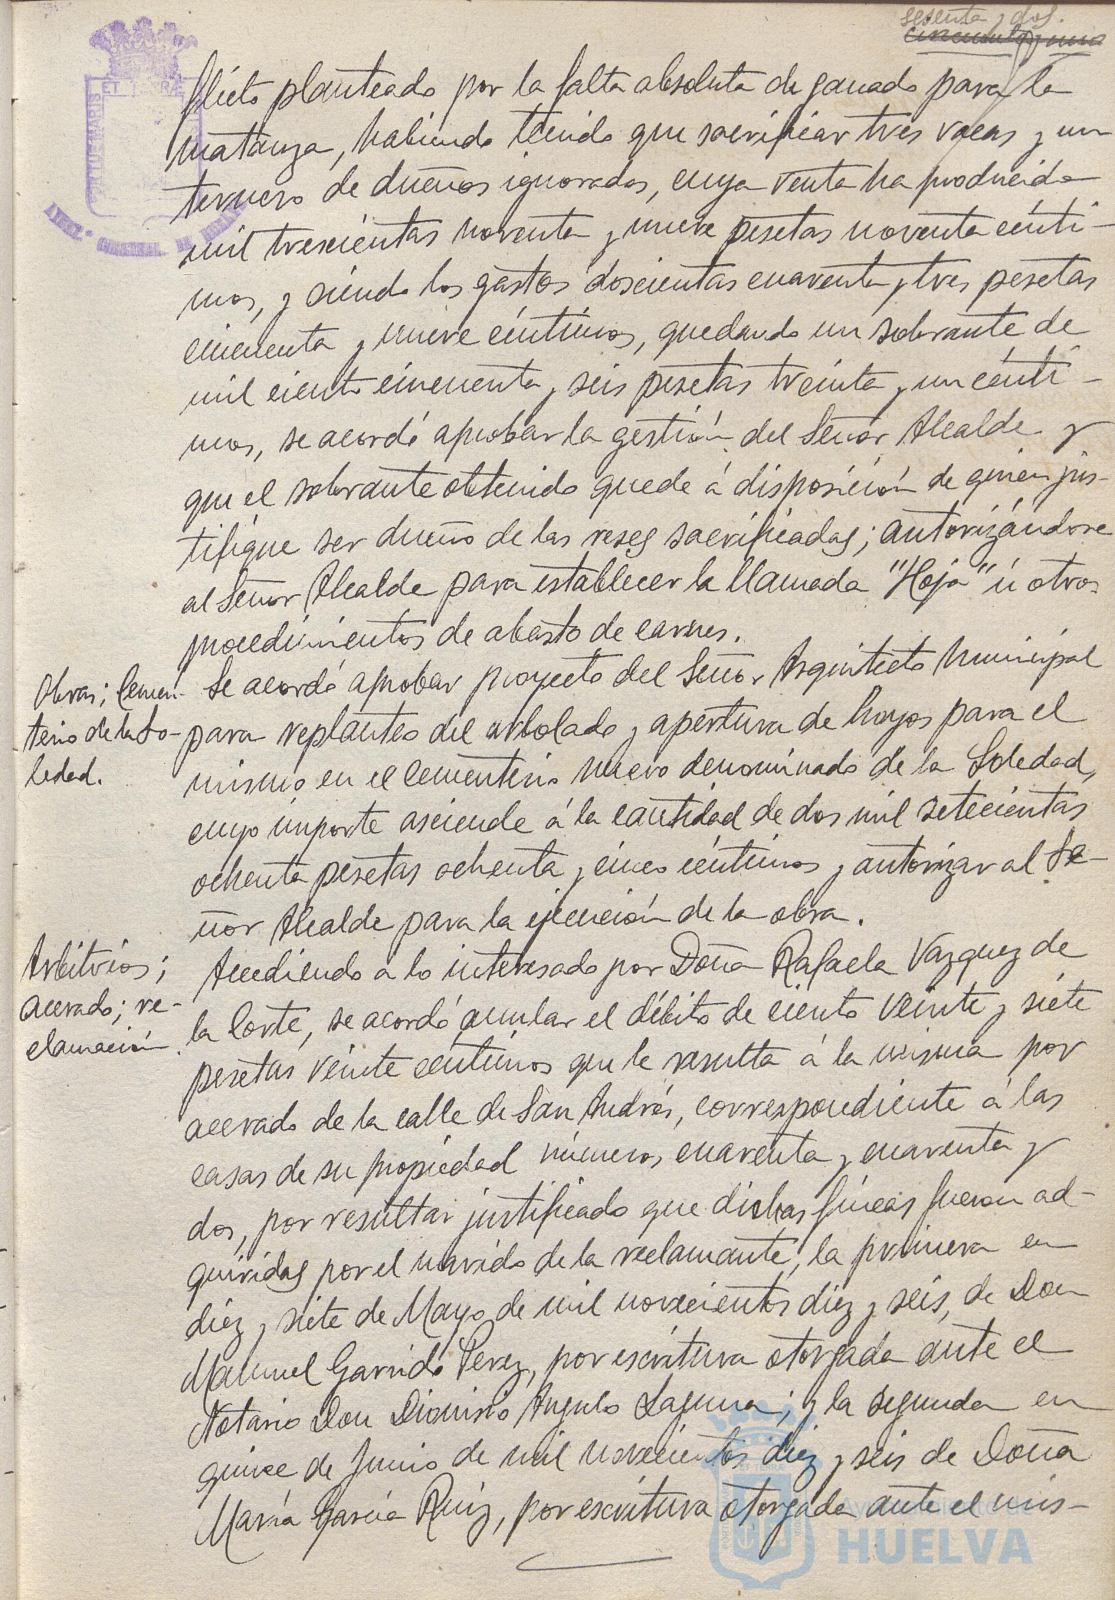 sesenta y dos.
cincuenta y uno
flicto planteado por la falta absoluta de ganado para la
matanza, habiendo tenido que sacrificar tres vacas y un
ternero de dueños ignorados, cuya venta ha producido
mil trescientas noventa y nueve pesetas noventa cénti-
mos, y siendo los gastos doscientas cuarenta y tres pesetas
cincuenta y nueve céntimos, quedando un sobrante de
mil ciento cincuenta y seis pesetas treinta y un cénti-
mos, se acordó aprobar la gestión del Señor Alcalde y
que el sobrante obtenido quede á disposición de quien jus-
tifique ser dueño de las reses sacrificadas; autorizándose
al Señor Alcalde para establecer la llamada "Hoja" ú otros
procedimientos de abasto de carnes.
Obras; Cemen-
terio de la So-
ledad.
Se acordó aprobar proyecto del Señor Arquitecto Municipal
para replanteo del arbolado y apertura de hoyos para el
mismo en el Cementerio nuevo denominado de la Soledad,
cuyo importe asciende á la cantidad de dos mil setecientas
ochenta pesetas ochenta y cinco céntimos y autorizar al Se-
ñor Alcalde para la ejecución de la obra.
Arbitrios;
acerado; re-
clamación.
Accediendo a lo interesado por Doña Rafaela Vazquez de
la Corte, se acordó anular el débito de ciento veinte y siete
pesetas veinte céntimos que le resulta á la misma por
acerado de la calle de San Andrés, correspondiente á las
casas de su propiedad números cuarenta y cuarenta y
dos, por resultar justificado que dichas fincas fueron ad-
quiridas por el marido de la reclamante, la primera en
diez y siete de Mayo de mil novecientos diez y seis, de Don
Manuel Garrido Perez, por escritura otorgada ante el
Notario Don Dionisio Angulo Laguna; y la segunda en
quince de Junio de mil novecientos diez y seis de Doña
María García Ruiz, por escritura otorgada ante el mis-
HUELVA